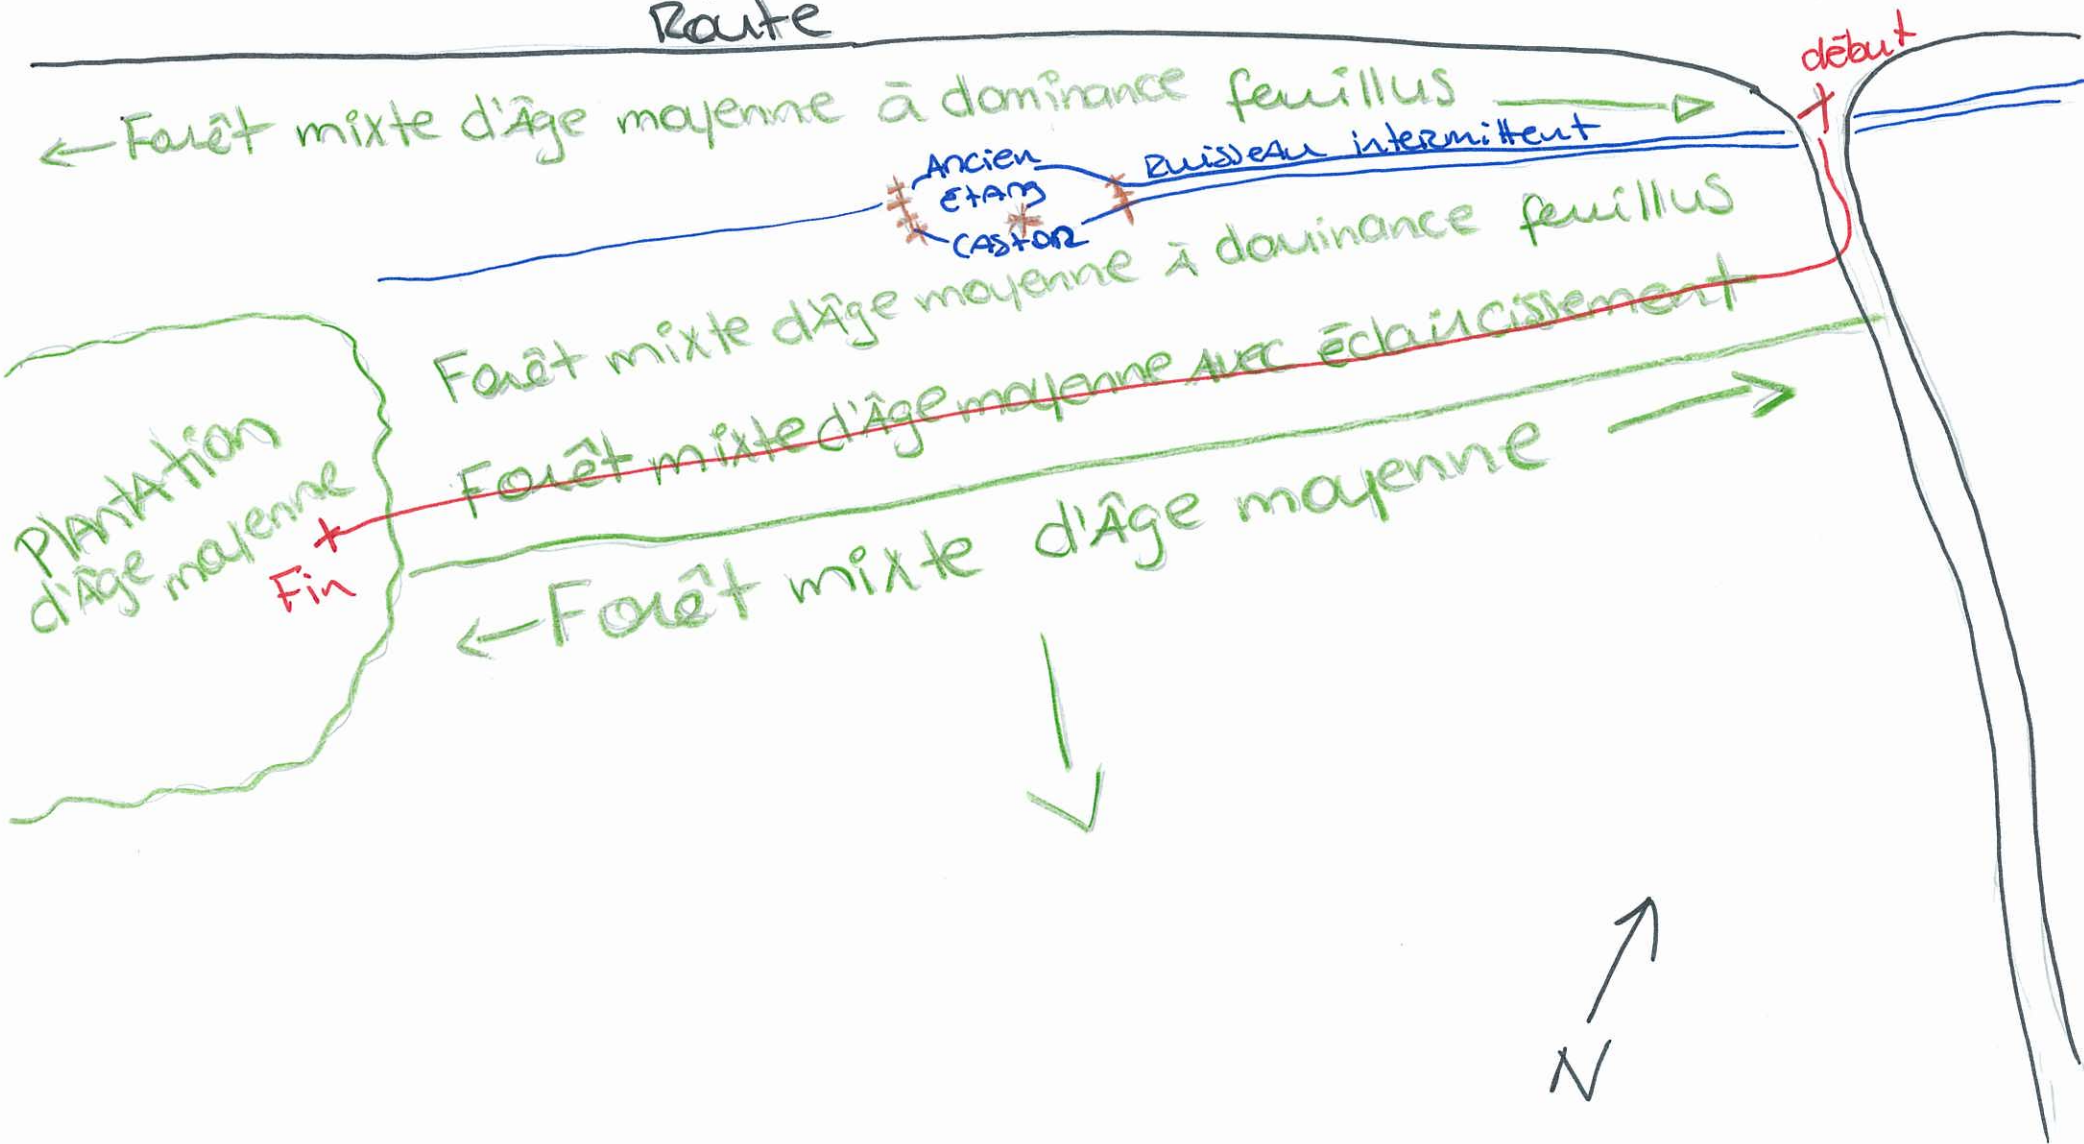 Route
début
Forêt mixte d'Âge moyenne à dominance feuillus
Ruisseau intermittent
Ancien
Étang
CASTOR
Forêt mixte d'Âge moyenne À dominance feuillus
Forêt mixte d'Âge moyenne AVEC éclaircissement
Plantation
d'Âge moyenne
Fin
Forêt mixte d'Âge moyenne
N